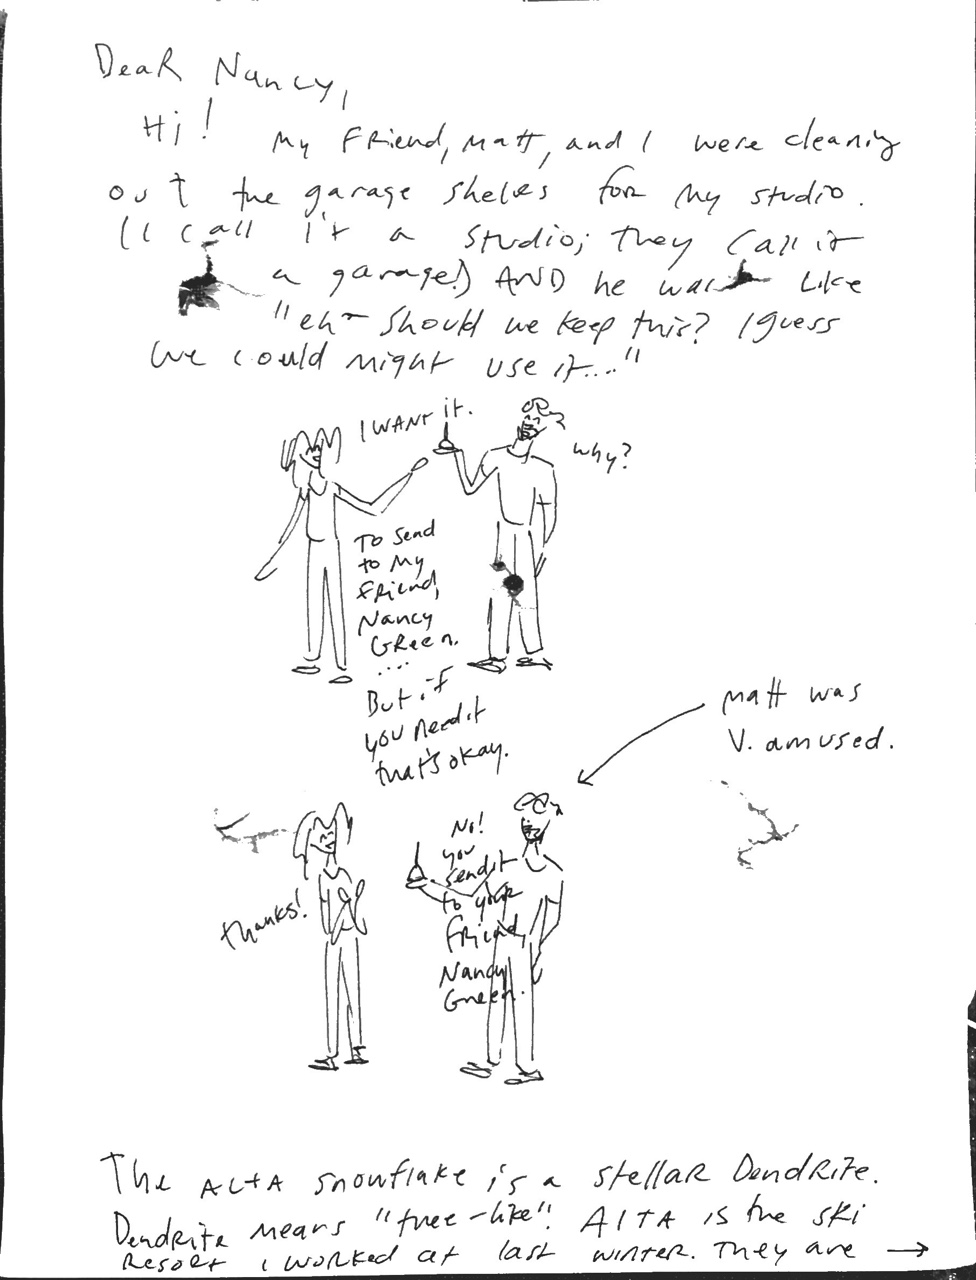 Dear Nancy,
Hi! My Friend, Matt, and I were cleaning
out the garage shelves for my studio.
(I call it a studio; they call it
a garage!) AND he was like
"eh- should we keep this? I guess
we could might use it...."
I WANT it.
Why?
To send
to my
Friend,
Nancy
Green.
....
But if
you need it
that's okay.
Matt was
V. amused.
No!
you
send it
to your
friend
Nancy
Green.
thanks!
The ALTA snowflake is a stellar Dendrite.
Dendrite means "tree-like". AlTA is the ski
Resort I worked at last winter. They are →